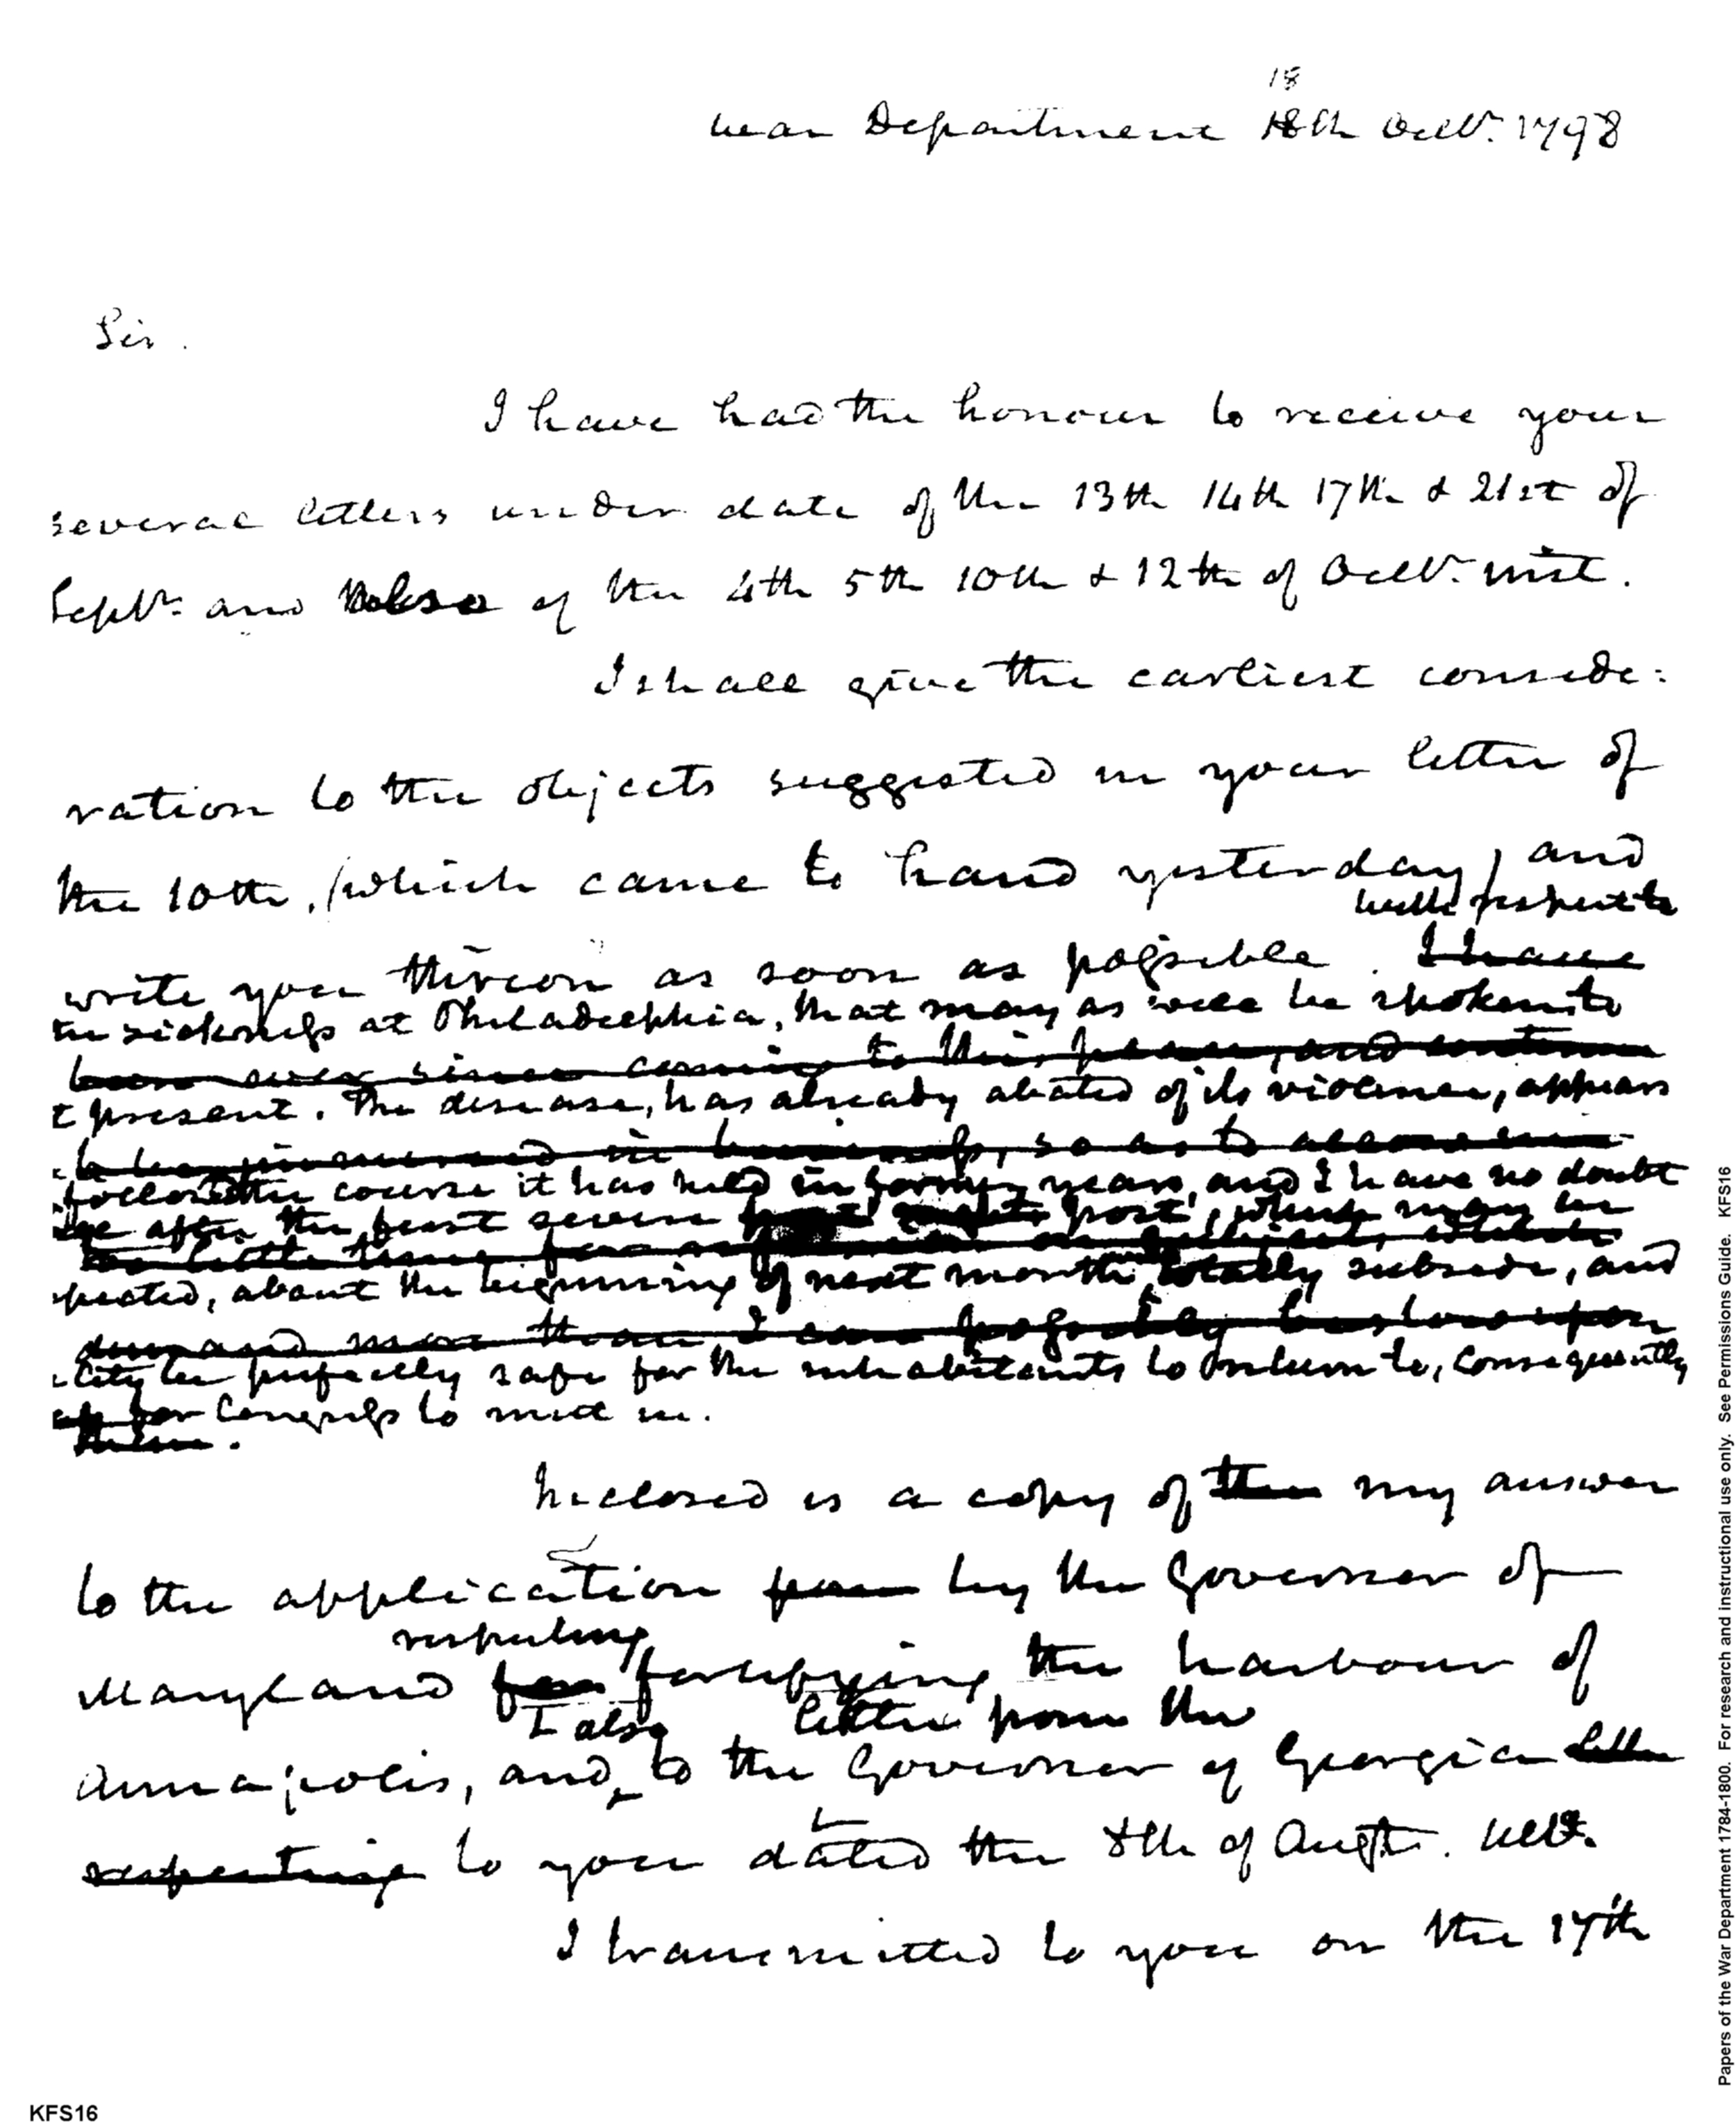 18
War Department 18th Octbr. 1798
Sir.
I have had the honour to receive your
several letters under date of the 13th 14th 17th & 21st of
Septbr. and also of the 4th 5th 10th & 12th of Octbr. inst.
I shall give the earliest conside:
ration to the objects suggested in your letter of
the 10th, (which came to hand yesterday) and
with respect to
write you thereon as soon as possible. I have
the sickness at Philadelphia, that may as well be spoken to
been ever since coming to this place, and continue
t present. The disease, has already abated of its violence, appears
to be immersed in business, so as to
follow the course it has held in former years, and I have no doubt
after the first severe frost, which may be
little time for
pected, about the beginning of next month totally subside, and
demand more than I can possibly bestow upon
City be perfectly safe for the inhabitants to return to, consequently
for Congress to meet in.
them.
Inclosed is a copy of the my answer
to the application from by the Governor of
respecting
Maryland for fortifying the harbour of
I also letter from the
Annapolis, and to the Governor of Georgia letter
respecting to you dated the 8th of Augt. ult.
I transmitted to you on the 17th
KFS16
Papers of the War Department 1784-1800. For research and instructional use only. See Permissions Guide. KFS16